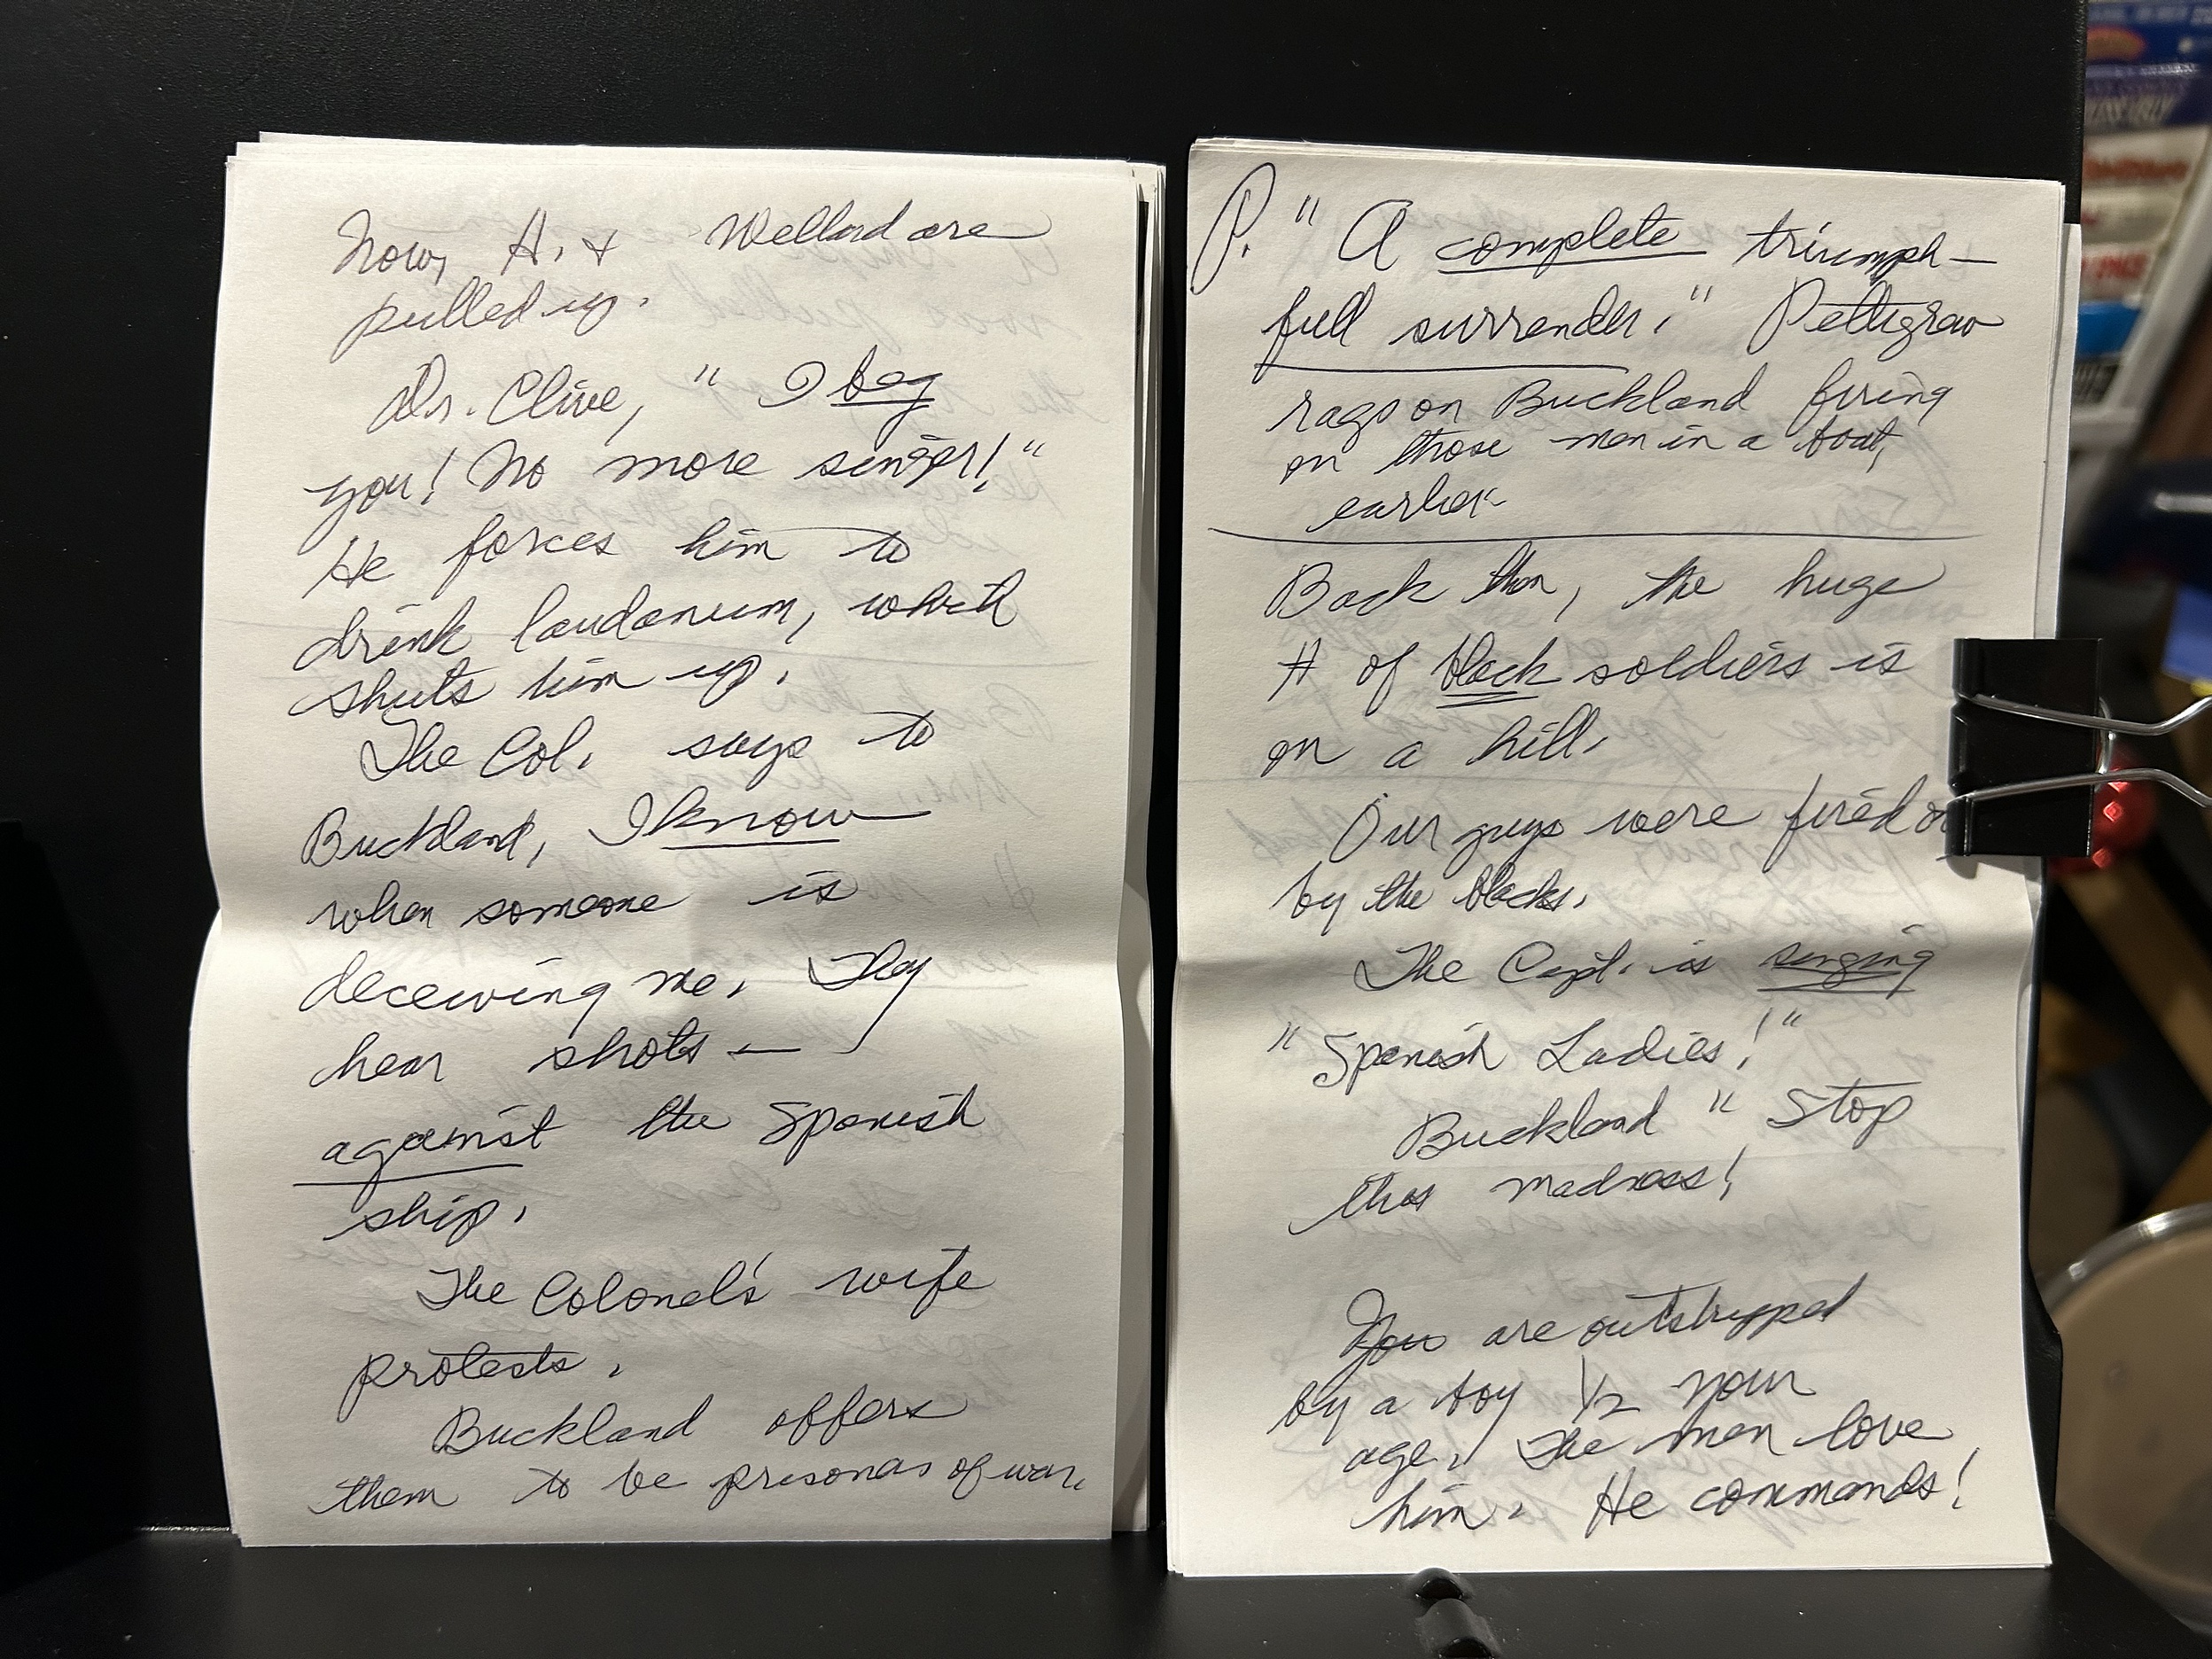 Now, H. & Wellard are
pulled up.
Dr. Clive, " I beg
you! No more singer!"
He forces him to
drink laudanum, which
shuts him up.
The Col. says to
Buckland, I know
when someone is
deceiving me. They
hear shots —
against the Spanish
ship.
The Colonel's wife
protests.
Buckland offers
them to be prisonas of war.
P. "A complete triumph—
full surrender." Pettigrew
rags on Buckland firing
on those men in a boat,
earlier.
Back then, the huge
# of black soldiers is
on a hill.
Our guys were fired on
by the blacks.
The Capt. is singing
"Spanish Ladies!"
Buckland " Stop
this madness!
You are outstripped
by a boy 1/2 your
age. The men love
him. He commands!